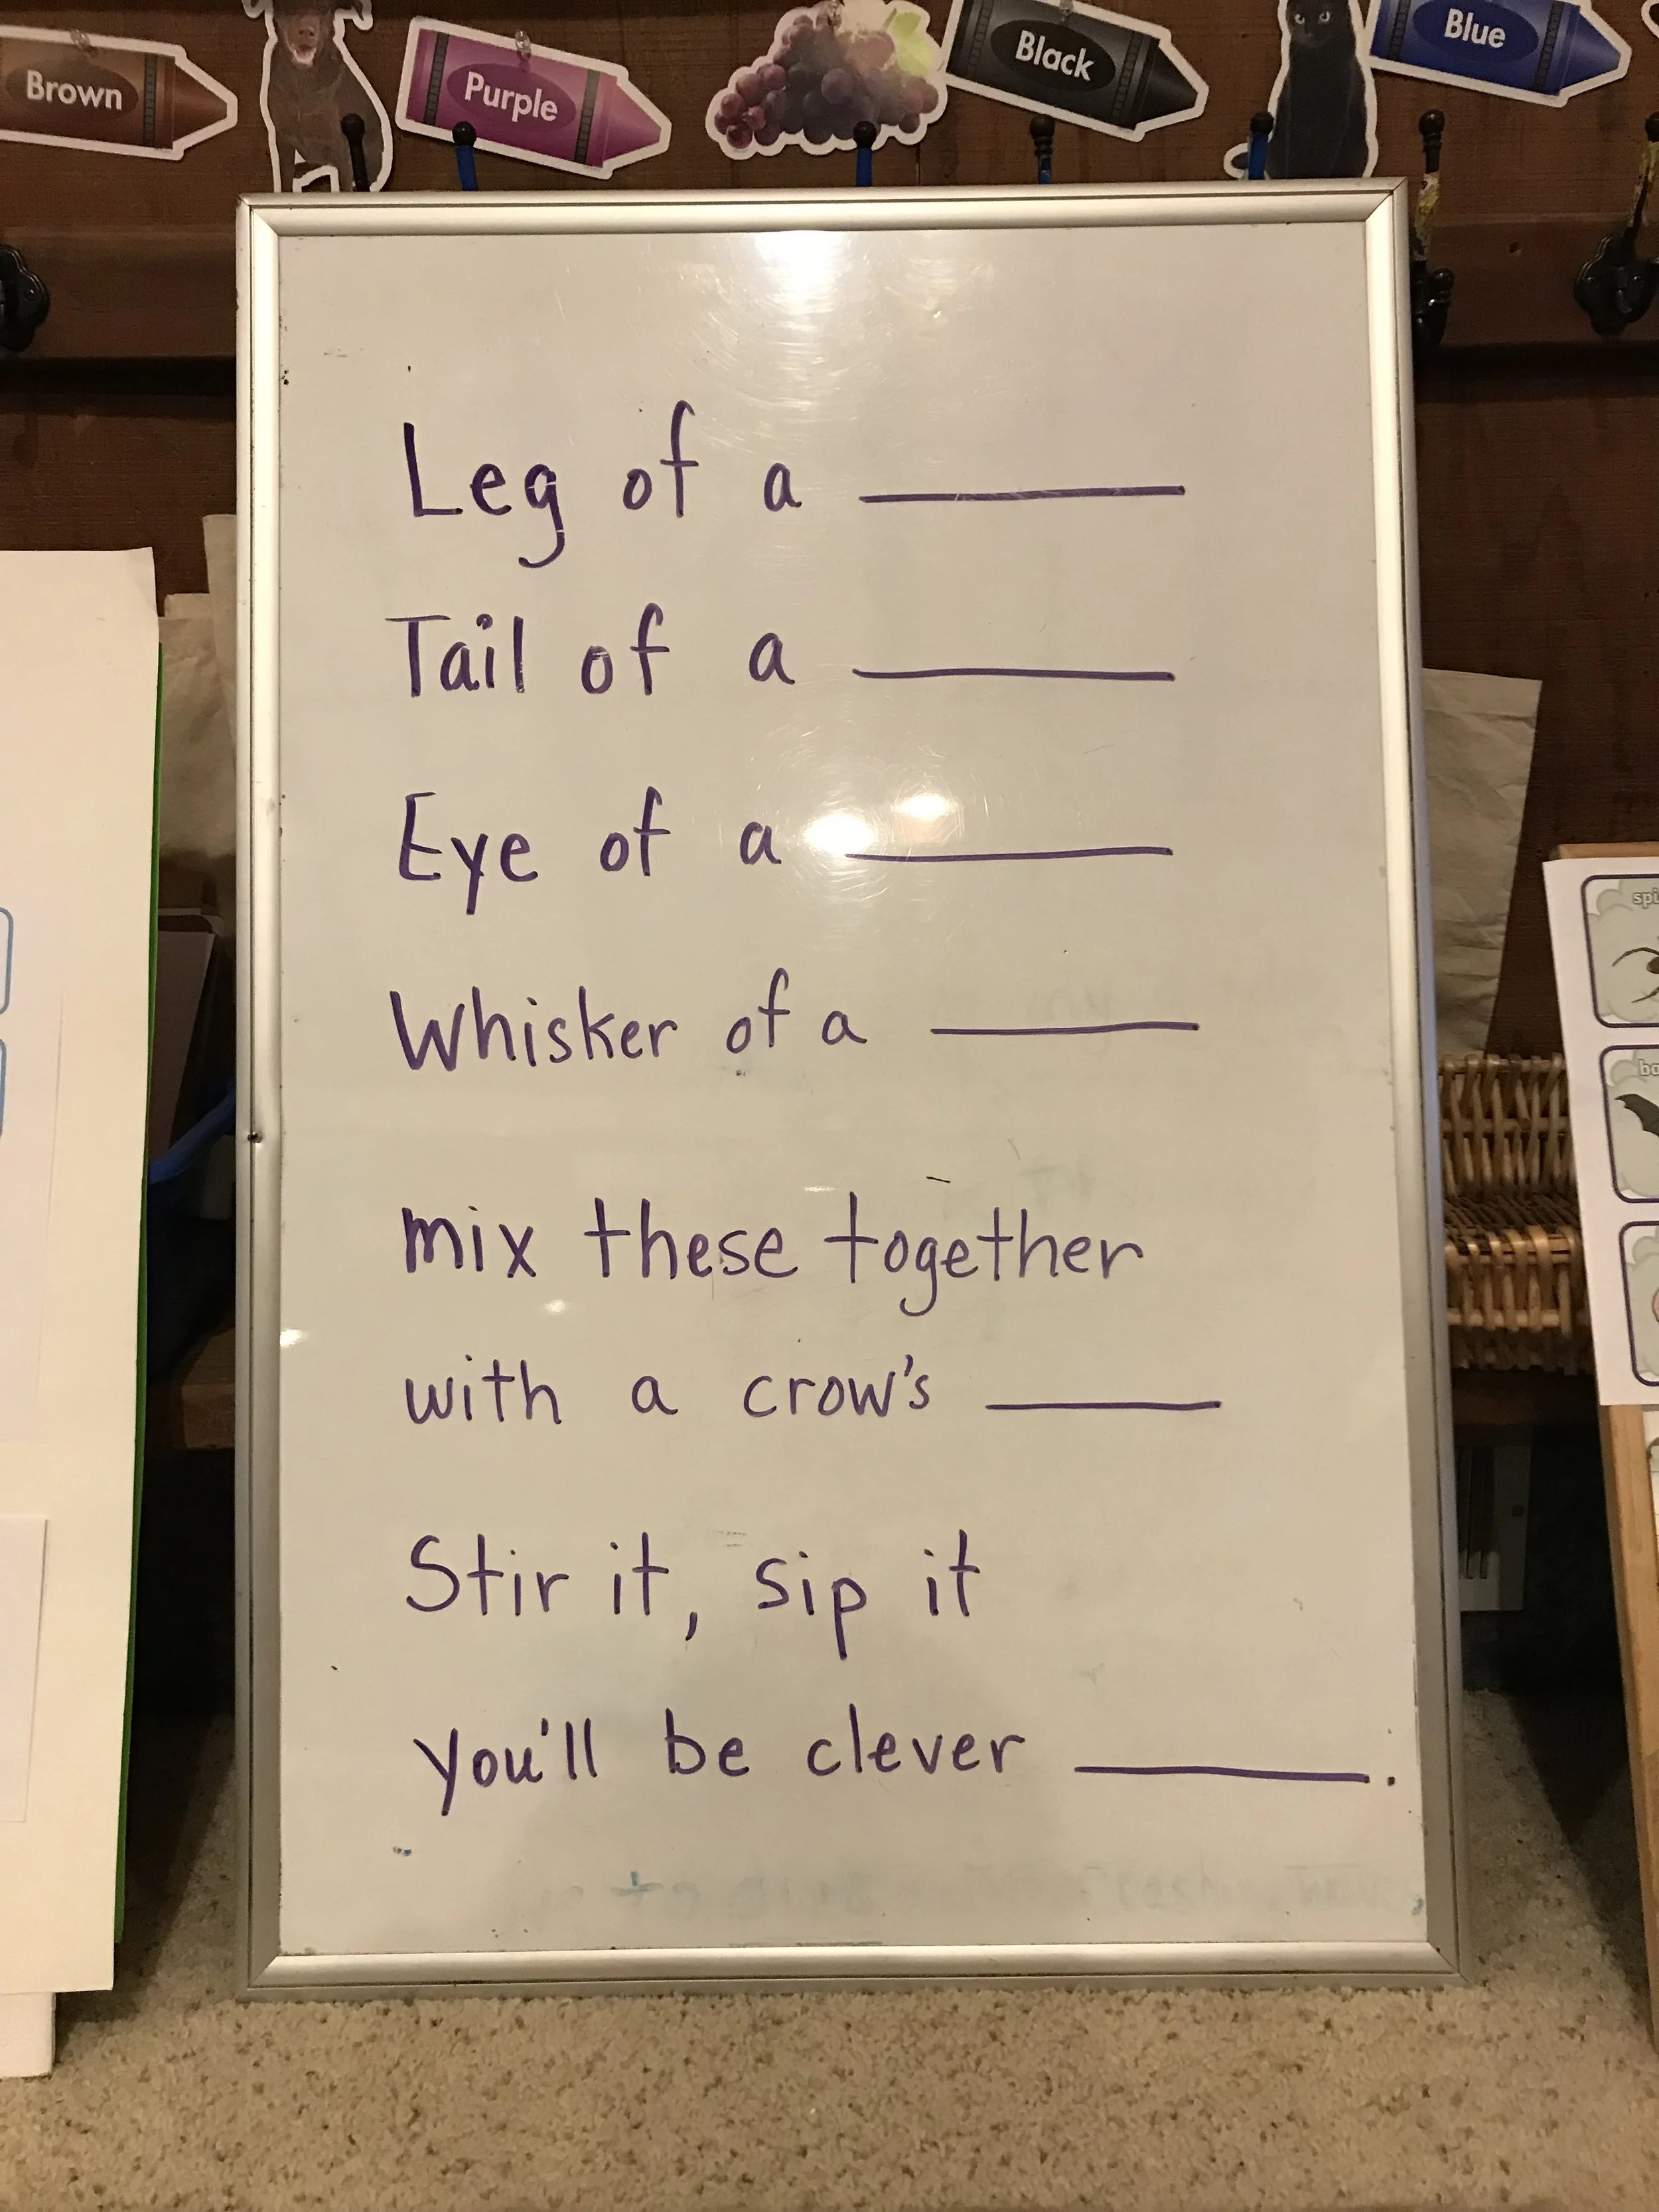 Brown
Purple
Black
Blue
Leg of a
Tail of a
Eye of a
Whisker of a
mix these together
with a crow's
Stir it, sip it
you'll be clever .